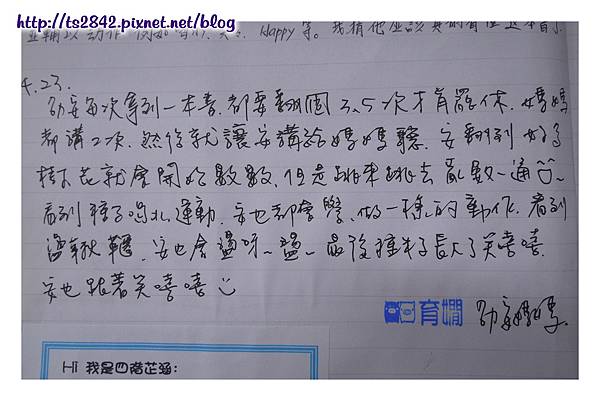 http://ts2842.pixnet.net/blog
Happy等。我猜他應該真的看懂這本書了
4.23.
劭安每次拿到一本書,都要翻個3、5次才肯罷休,媽媽
都講2次,然後就讓安講給媽媽聽,安翻到好多
樹、花就會開始數數,但是跳來跳去亂數一通
看到種子喝水、運動,安也都會學、做一樣的動作,看到
盪鞦韆,安也會盪呀~盪~最後種子長大了笑嘻嘻,
安也跟著笑嘻嘻
育嫺 劭安媽媽.
Hi 我是四踏芷涵: